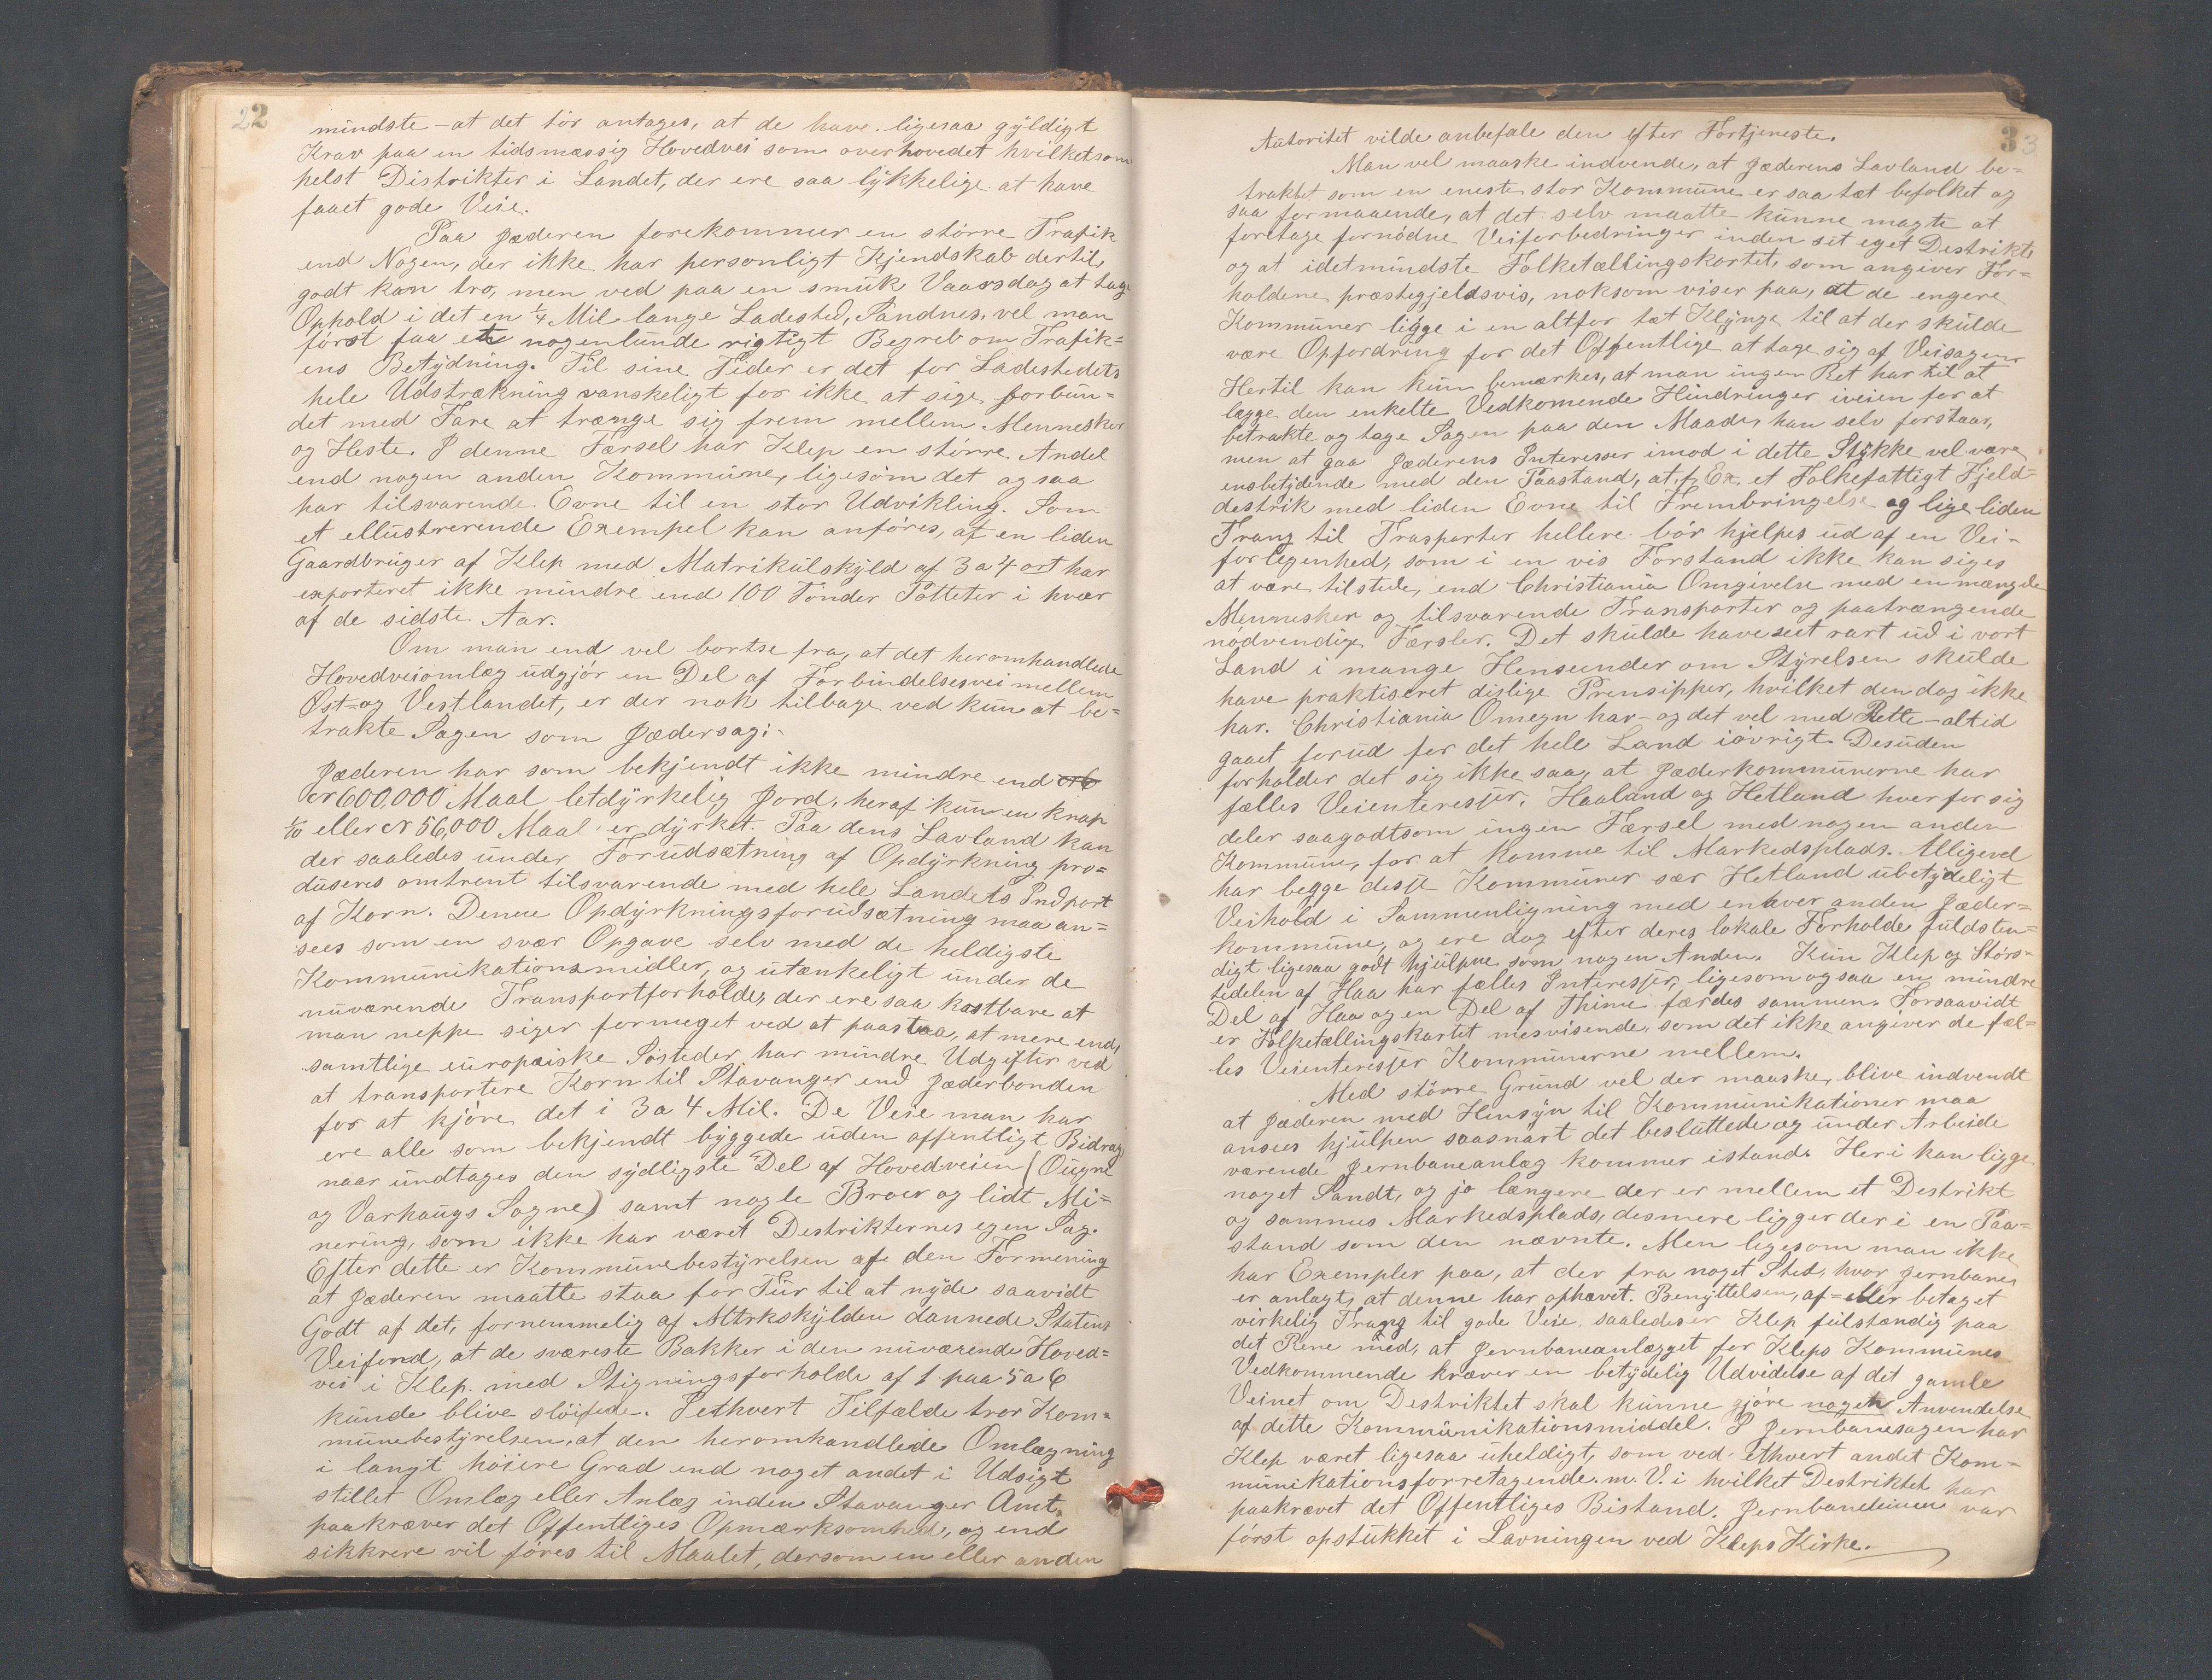 22
mindste - at det tör antages, at de have ligesaa gyldigt
Krav paa en tidsmæssig Hovedvei som overhovedet hvilketsom
helst Distrikter i Landet, der ere saa lykkelige at have
faaet gode Veie.
Paa Jæderen forekommer en större Trafik
end Nogen, der ikke har personligt Kjendskab dertil,
godt kan tro, men ved paa en smuk Vaarsdag at tage
Ophold i det en ¼ Mil lange Ladested, Sandnes, vel man
först faa et nogenlunde rigtigt Begreb om Trafik=
ens Betydning. Til sine Tider er det for Ladestedets
hele Udstrækning vanskeligt for ikke at sige forbun=
det med Fare at trænge sig frem mellem Mennesker
og Heste. I denne Færsel har Klep en större Andel
end nogen anden Kommune, ligesom det ogsaa
har tilsvarende Evne til en stor Udvikling. Som
et ellustrerende Exempel kan anföres, at en liden
Gaardbruger af Klep med Matrikulskyld af 3 a 4 ort har
exporteret ikke mindre end 100 Tönder Potteter i hvær
af de sidste Aar.
Om man end vel bortse fra, at det heromhandlede
Hovedveiomlæg udgjör en Del af Forbindelsesvei mellem
Öst- og Vestlandet, er der nok tilbage ved kun at be=
trakte Sagen som Jædersag:-
Jæderen har som bekjendt ikke mindre end
cr 600,000 Maal letdyrkelig Jord, heraf kun en knap
1/10 eller cr 56,000 Maal er dyrket. Paa dens Lavland kan
der saaledes under Forudsætning af Opdyrkning pro=
duseres omtrent tilsvarende med hele Landets Indport
af Korn. Denne Opdyrkningsforudsætning maa an=
sees som en svær Opgave selv med de heldigste
Kommunikationsmidler, og utænkeligt under de
nuværende Transportforholde, der ere saa kostbare at
man neppe siger formeget ved at paastaa, at mere end
samtlige europæiske Sösteder har mindre Udgifter ved
at transportere Korn til Stavanger end Jæderbonden
for at kjöre det i 3 a 4 Mil. De Veie man har
ere alle som bekjendt byggede uden offentligt Bidrag
naar undtages den sydligste Del af Hovedveien (Ougne
og Varhaugs Sogne) samt nogle Broer og lidt Mi=
nering, som ikke har været Destrikternes egen Sag.
Efter dette er Kommunebestyrelsen af den Formening
at Jæderen maatte staa for Tur til at nyde saavidt
Godt af det, fornemmelig af Mtrkskylden dannede Statens
Veifond, at de sværeste Bakker i den nuværende Hoved=
vei i Klep med Stigningsforholde af 1 paa 5 a 6
kunde blive slöifede. I ethvert Tilfælde tror Kom=
munebestyrelsen, at den heromhandlede Omlægning
i langt höiere Grad end noget andet i Udsigt
stillet Omlæg eller Anlæg inden Stavanger Amt,
paakræver det Offentliges Opmærksomhed, og end
sikkrere vil föres til Maalet, dersom en eller anden
33
Autoritet vilde anbefale den efter Fortjeneste.
Man vel maaske indvende, at Jæderens Lavland be=
traktet som en eneste stor Kommune er saa tæt befolket og
saa formaaende, at det selv maatte kunne magte at
foretage fornödne Veiforbedringer inden sit eget Destrikt,
og at idetmindste Folketællingskartet, som angiver For=
holdene præstegjeldsvis, noksom viser paa, at de engere
Kommuner ligge i en altfor tæt Klynge til at der skulde
være Opfordring for det Offentlige at tage sig af Veisagen.
Hertil kan kun bemærkes, at man ingen Ret har til at
lægge den enkelte Vedkomende Hindringer iveien for at
betrakte og tage Sagen paa den Maade, han selv forstaar,
men at gaa Jæderens Interesser imod i dette Stykke vel være
ensbetydende med den Paastand, at f. Ex. et Folkefattigt Fjeld=
destrik med liden Evne til Frembringelse og lige liden
Trang til Trasporter hellere bör hjelpes ud af en Vei-
forlegenhed, som i en vis Forstand ikke kan siges
at være tilstede, end Christiania Omgivelse med en mængde
Mennesker og tilsvarende Transporter og paatrængende
nödvendige Færsler. Det skulde have seet rart ud i vort
Land i mange Henseender om Styrelsen skulde
have praktiseret dislige Prensipper, hvilket den dog ikke
har. Christiania Omegn har - og det vel med Rette - altid
gaaet forud for det hele Land iövrigt. Desuden
forholder det sig ikke saa, at Jæderkommunerne har
fælles Veienteresser. Haaland og Hetland hver for sig
deler saagodtsom ingen Færsel med nogen anden
Kommune, for at komme til Markedsplads. Alligevel
har begge disse Kommuner sær Hetland ubetydeligt
Veihold i Sammenligning med enhver anden Jæder=
kommune, og ere dog efter deres lokale Forholde fuldsten=
digt ligesaa godt hjulpne som nogen Anden. Kun Klep og Störs-
tedelen af Haa har fælles Interesser, ligesom ogsaa en mindre
Del af Haa og en Del af Thime færdes sammen. Forsaavidt
er Folketællingskartet mesvisende, som det ikke angiver de fæl=
les Veienteresser Kommunerne mellem.
Med större Grund vel der maaske, blive indvendt
at Jæderen med Hensyn til Kommunikationer maa
ansees hjulpen saasnart det besluttede og under Arbeide
værende Jernbaneanlæg kommer istand. Heri kan ligge
noget Sandt, og jo længere der er mellem et Destrikt
og sammes Markedsplads, desmere ligger der i en Paa=
stand som den nævnte. Men ligesom man ikke
har Exempler paa, at der fra noget Sted, hvor Jernbaner
er anlagt, at denne har ophævet Benyttelsen, af= eller betaget
virkelig Trang til gode Veie, saaledes er Klep fulstændig paa
det Rene med, at Jernbaneanlægget for Kleps Kommunes
Vedkommende kræver en betydelig Udvidelse af det gamle
Veinet om Destriktet skal kunne gjöre nogen Anvendelse
af dette Kommunikationsmiddel. I Jernbanesagen har
Klep været ligesaa uheldigt, som ved ethvert andet Kom=
munikationsforretagende m. V. i hvilket Destriktet har
paakrævet det Offentliges Bistand. Jernbanelinien var
först opstukket i Lavningen ved Kleps Kirke.